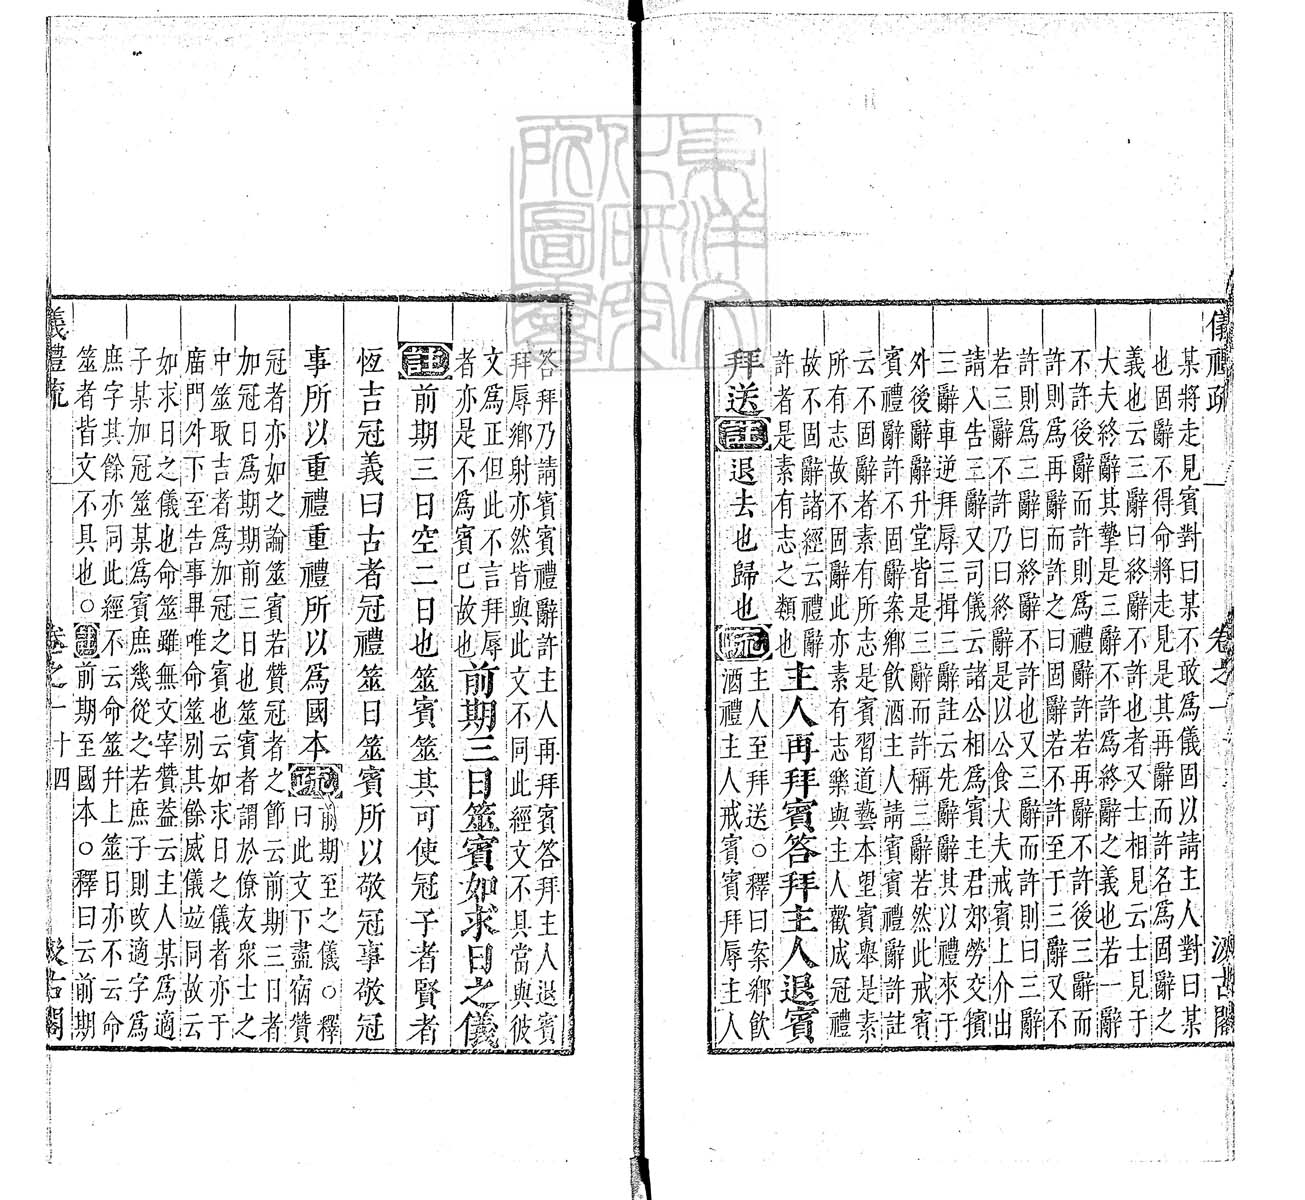 儀禮疏 卷之一 汲古閣
某將走見賓對曰某不敢爲儀固以請主人對曰某
也固辭不得命將走見是其再辭而許名爲固辭之
義也云三辭曰終辭不許也者又士相見云士見于
大夫終辭其摯是三辭不許爲終辭之義也若一辭
不許後辭而許則爲禮辭許若再辭不許後三辭而
許則爲再辭而許之曰固辭若不許至于三辭又不
許則爲三辭曰終辭不許也又三辭而許則曰三辭
若三辭不許乃曰終辭是以公食大夫戒賓上介出
請入告三辭又司儀云諸公相爲賓主君郊勞交擯
三辭車逆拜辱三揖三辭註云先辭辭其以禮來于
外後辭辭升堂皆是三辭而許稱三辭若然此戒賓
賓禮辭許不固辭案鄉飲酒主人請賓賓禮辭許註
云不固辭者素有所志是賓習道藝本望賓舉是素
所有志故不固辭此亦素有志樂與主人歡成冠禮
故不固辭諸經云禮辭
許者是素有志之類也
主人再拜賓答拜主人退賓
拜送
註
退去也歸也
疏
主人至拜送○釋曰案鄉飲
酒禮主人戒賓賓拜辱主人
答拜乃請賓賓禮辭許主人再拜賓答拜主人退賓
拜辱鄉射亦然皆與此文不同此經文不具當與彼
文爲正但此不言拜辱
者亦是不爲賓己故也
前期三日筮賓如求日之儀
註
前期三日空二日也筮賓筮其可使冠子者賢者
恆吉冠義曰古者冠禮筮日筮賓所以敬冠事敬冠
事所以重禮重禮所以爲國本
疏
前期至之儀○釋
曰此文下盡宿贊
冠者亦如之論筮賓若贊冠者之節云前期三日者
加冠日爲期期前三日也筮賓者謂於僚友衆士之
中筮取吉者爲加冠之賓也云如求日之儀者亦于
廟門外下至告事畢唯命筮別其餘威儀竝同故云
如求日之儀也命筮雖無文宰贊葢云主人某爲適
子某加冠筮某爲賓庶幾從之若庶子則改適字爲
庶字其餘亦同此經不云命筮幷上筮日亦不云命
筮者皆文不具也○註前期至國本○釋曰云前期
儀禮疏 卷之一 十四 汲古閣
東洋文化研究所圖書